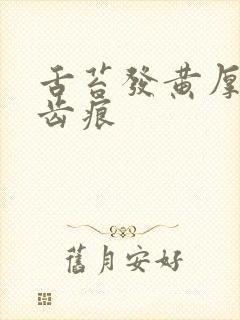 舌苔發黃厚
齿痕
舊月安好